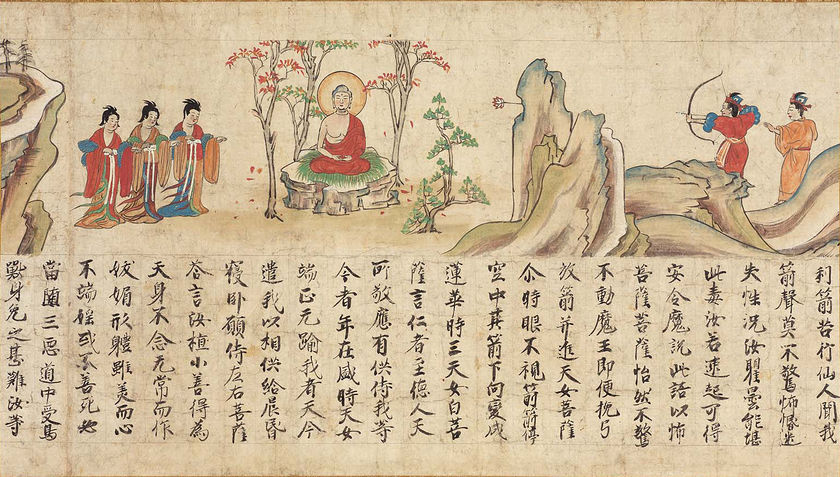 利箭若竹仙人聞我
箭聲莫不驚怖惛迷
失性況汝瞿曇能堪
此毒汝若速起可得
安全魔說此語以怖
菩薩菩薩怡然不驚
不動魔王即便挽弓
放箭并進天女菩薩
尒時眼不視箭箭停
空中其箭下向變成
蓮華時三天女白菩
薩言仁者至德人天
所敬應有供侍我等
今者年在盛時天女
端正无踰我者天今
遣我以相供給晨昏
寢卧願侍左右菩薩
答言汝植小善得為
天身不念无常而作
妖媚形體雖美而心
不端婬惑不善死必
當墮三惡道中受鳥
獸身免之甚難汝等